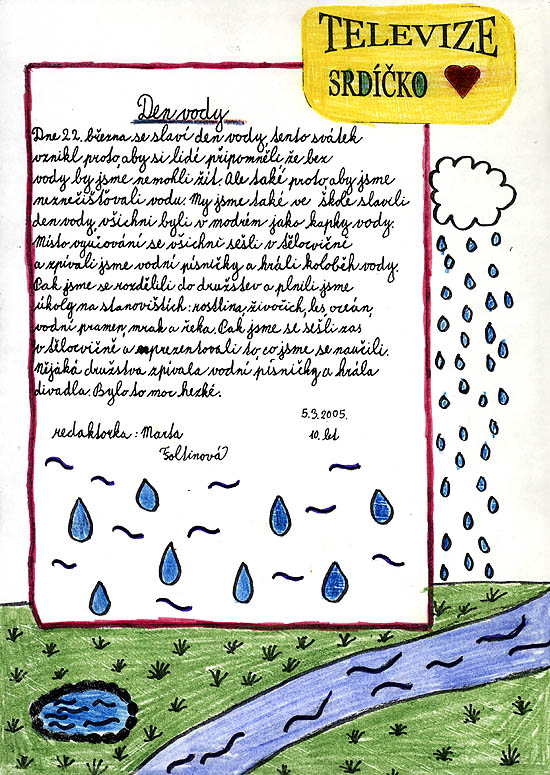 TELEVIZE
SRDÍČKO
Den vody
Dne 22. března se slaví den vody, tento svátek
vznikl proto, aby si lidé připomněli že bez
vody by jsme nemohli žít. Ale také proto, aby jsme
neznečišťovali vodu. My jsme také ve škole slavili
den vody, všichni byli v modrém jako kapky vody.
Místo vyučování se všichni sešli v tělocvičně
a zpívali jsme vodní písničky a hráli koloběh vody.
Pak jsme se rozdělili do družstev a plnili jsme
úkoly na stanovištích: rostlina, živočich, les, oceán,
vodní pramen, mrak a řeka. Pak jsme se sešli zas
v tělocvičně a prezentovali to, co jsme se naučili.
Nějáká družstva zpívala vodní písničky a hrála
divadla. Bylo to moc hezké.
5.9.2005.
redaktorka: Marta 10. let
Foltinová